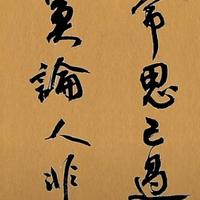 常思己過
莫論人非